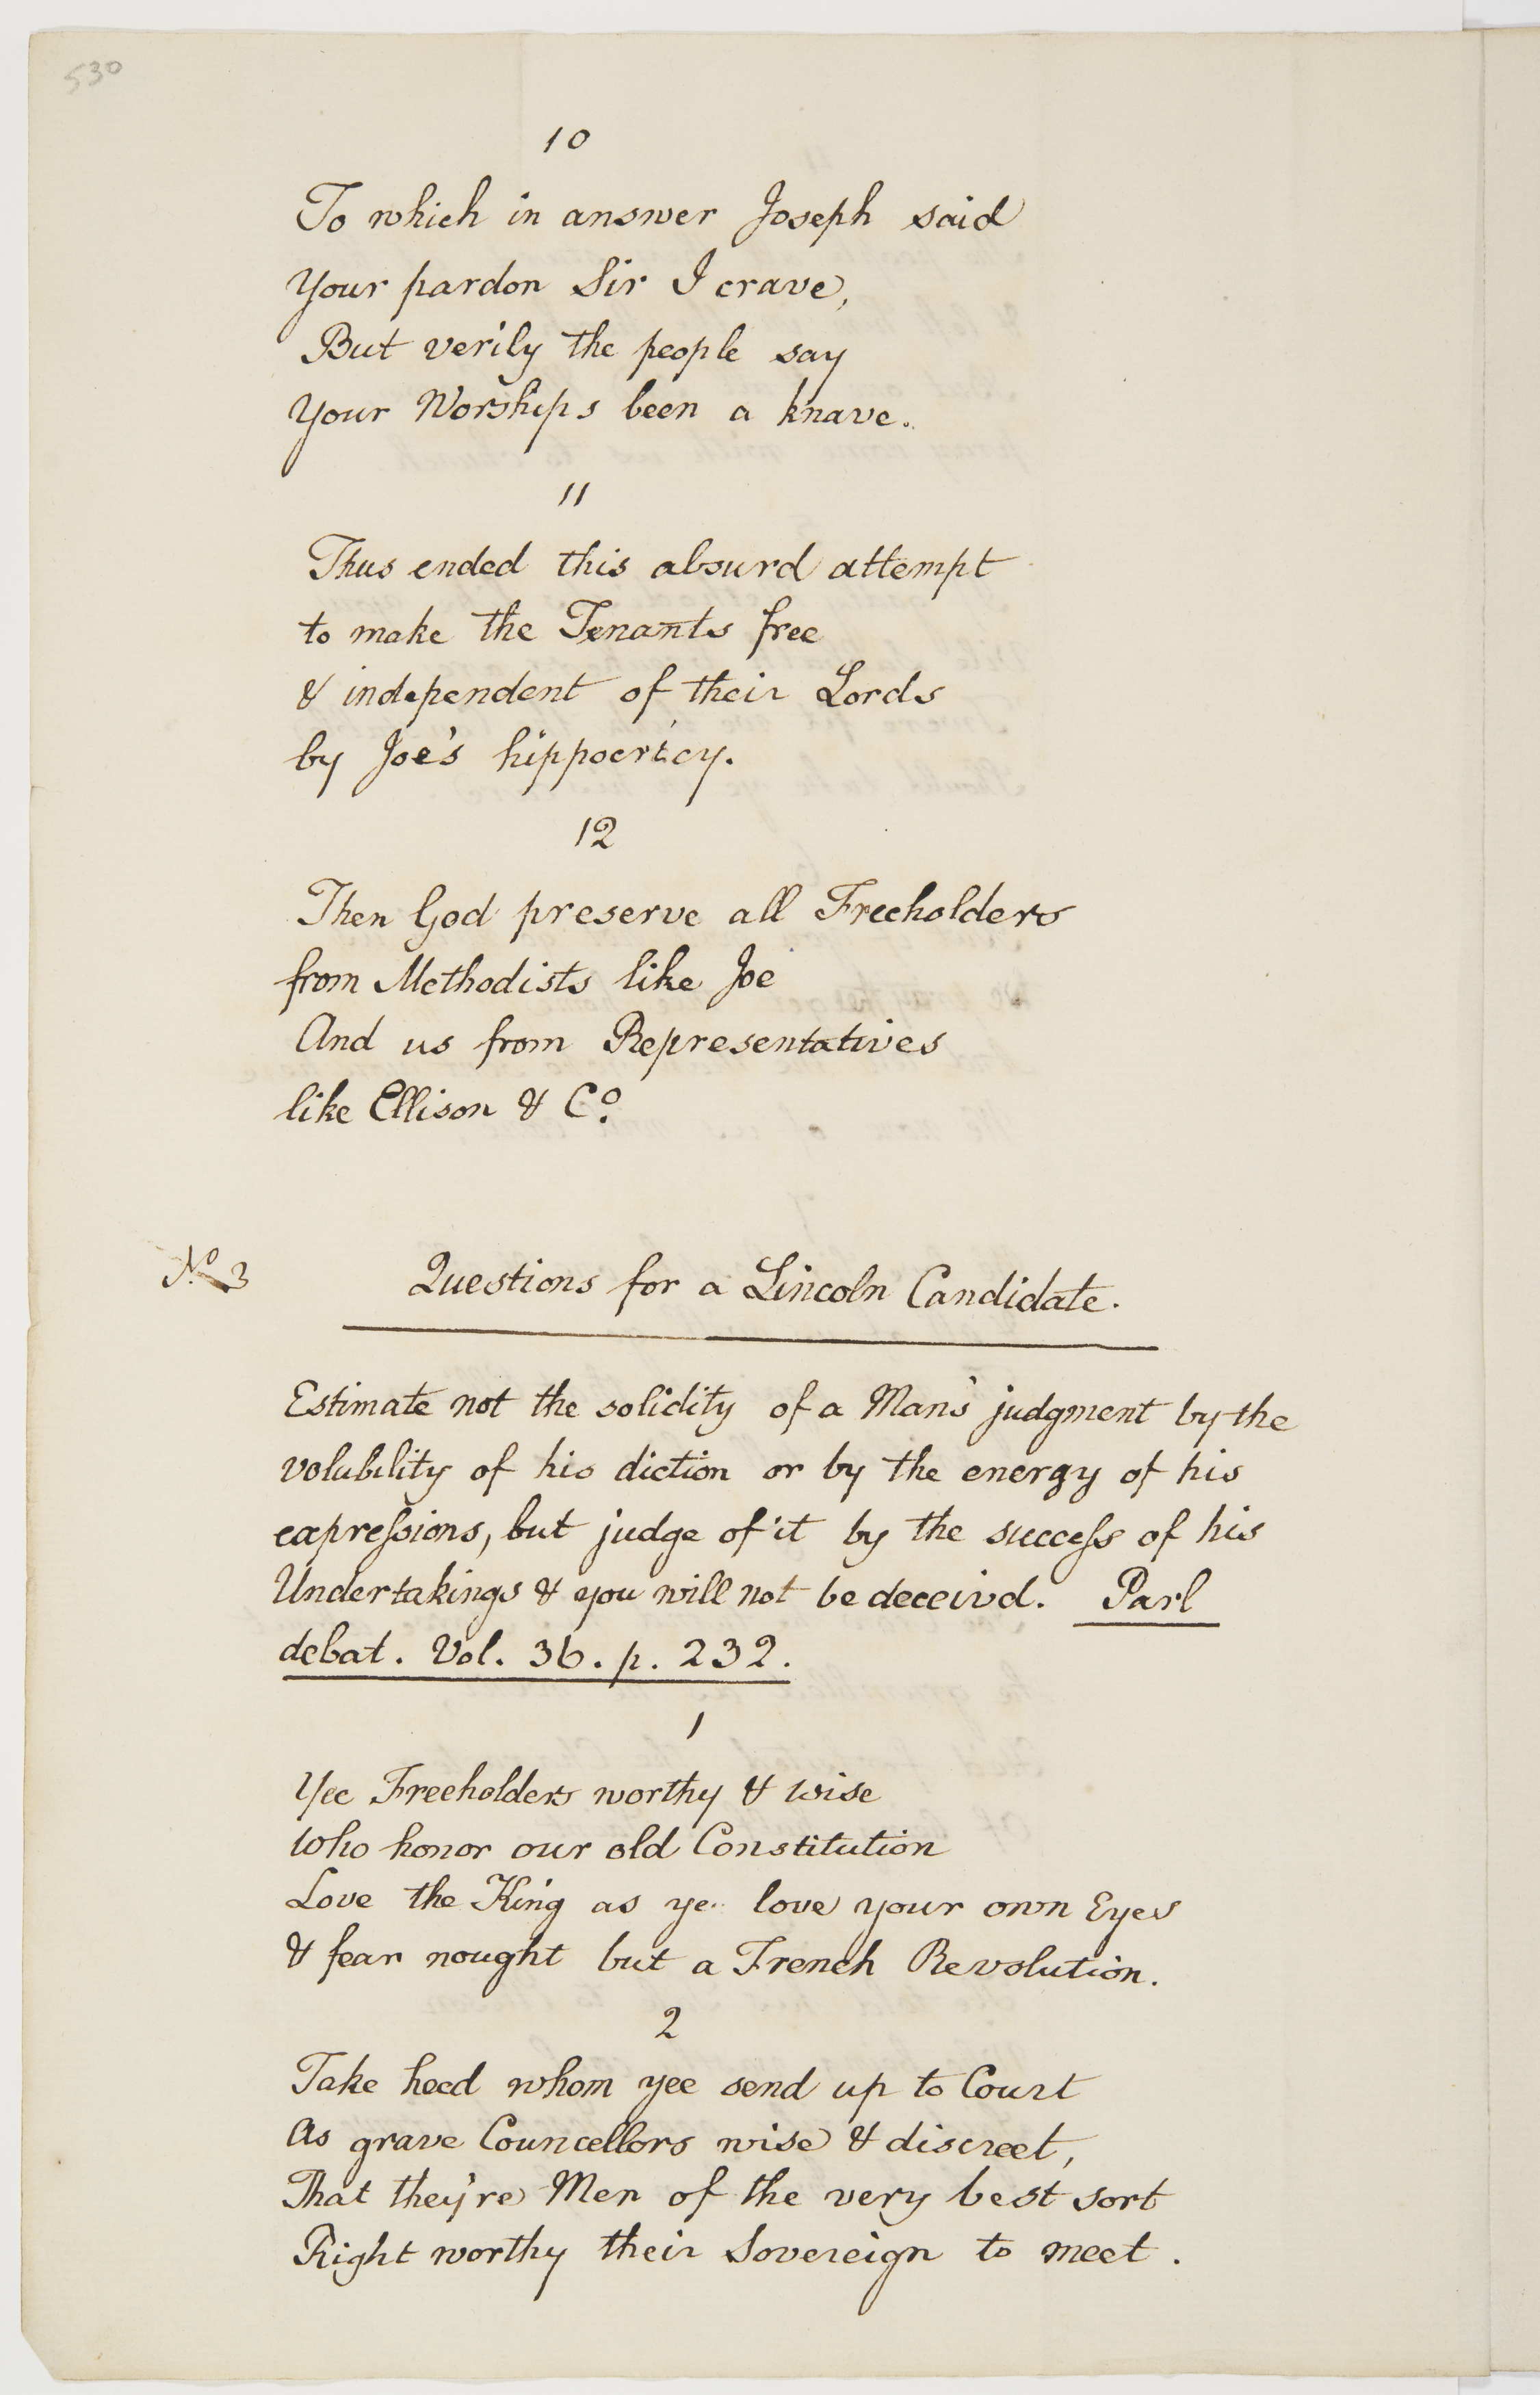 530
10
To which in answer Joseph said
Your pardon Sir I crave,
But verily the people say
Your Worships been a knave.
11
Thus ended this absurd attempt
to make the Tenants free
& independent of their Lords
by Joe's hippocricy.
12
Then God preserve all Freeholders
from Methodists like Joe
And us from Representatives
like Ellison & Co.
No. 3
Questions for a Lincoln Candidate.
Estimate not the solidity of a Man's judgment by the
volubility of his diction or by the energy of his
expressions, but judge of it by the success of his
Undertakings & you will not be deceivd. Parl
debat. Vol. 36. p. 232.
1
Yee Freeholders worthy & wise
Who honor our old Constitution
Love the King as ye love your own Eyes
& fear nought but a French Revolution.
2
Take heed whom yee send up to Court
As grave Councellors wise & discreet,
That they're Men of the very best sort
Right worthy their Sovereign to meet.